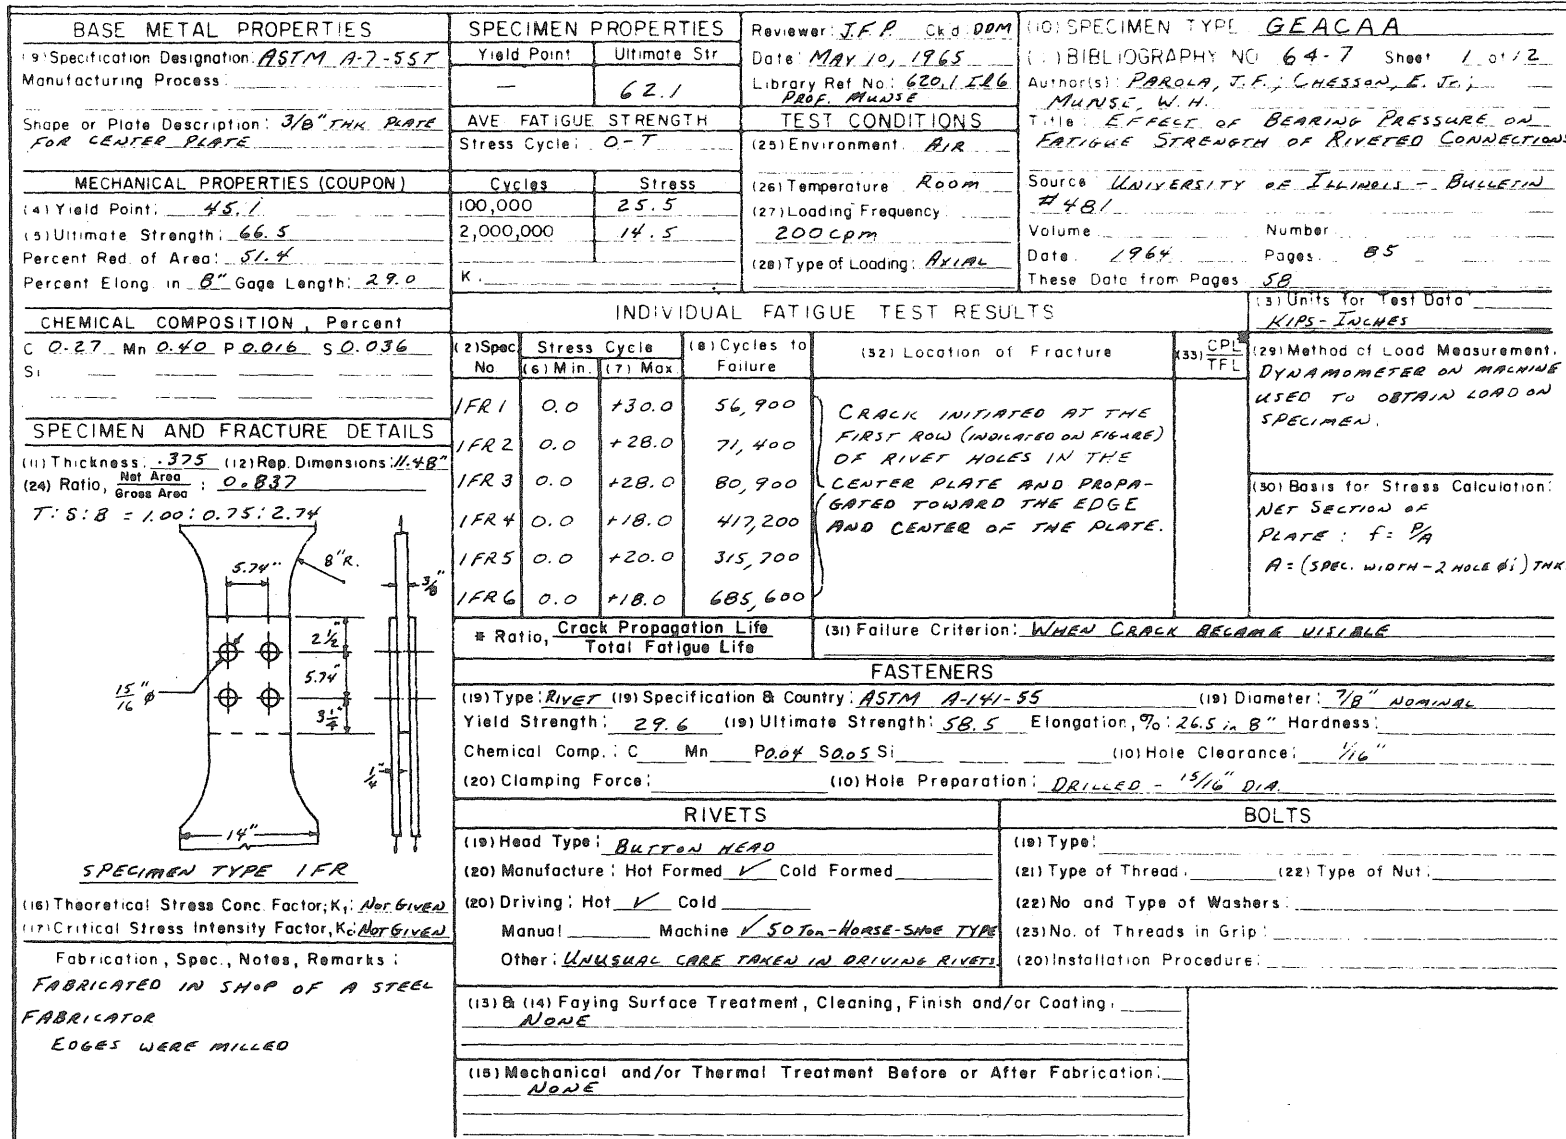 BASE METAL PROPERTIES
(9) Specification Designation: ASTM A-7-55T
Manufacturing Process:
Shape or Plate Description: 3/8" THK PLATE
FOR CENTER PLATE
MECHANICAL PROPERTIES (COUPON)
(4) Yield Point: 45.1
(5) Ultimate Strength: 66.5
Percent Red. of Area: 51.4
Percent Elong. in 8" Gage Length: 29.0
CHEMICAL COMPOSITION, Percent
C 0.27 Mn 0.40 P 0.016 S 0.036
Si
SPECIMEN AND FRACTURE DETAILS
(11) Thickness: .375 (12) Rep. Dimensions: 11.48"
(24) Ratio, Net Area / Gross Area : 0.837
T:S:B = 1.00:0.75:2.74
5.74"
8"R.
3/8"
2 1/2"
5.74"
15/16" φ
3 1/4"
1/4"
14"
SPECIMEN TYPE 1FR
(16) Theoretical Stress Conc. Factor; Kt: NOT GIVEN
(17) Critical Stress Intensity Factor, Kc: NOT GIVEN
Fabrication, Spec., Notes, Remarks:
FABRICATED IN SHOP OF A STEEL
FABRICATOR
EDGES WERE MILLED
SPECIMEN PROPERTIES
Yield Point Ultimate Str
— 62.1
AVE FATIGUE STRENGTH
Stress Cycle: O-T
Cycles Stress
100,000 25.5
2,000,000 14.5
K.
Reviewer: J.F.P. Ck'd DDM
Date: MAY 10, 1965
Library Ref No: 620.1 IL6
PROF. MUNSE
TEST CONDITIONS
(25) Environment. AIR
(26) Temperature ROOM
(27) Loading Frequency
200 cpm
(28) Type of Loading: AXIAL
(10) SPECIMEN TYPE GEACAA
(1) BIBLIOGRAPHY NO 64-7 Sheet 1 of 12
Author(s): PAROLA, J.F.; CHESSON, E. Jr.;
MUNSE, W.H.
Title: EFFECT OF BEARING PRESSURE ON
FATIGUE STRENGTH OF RIVETED CONNECTIONS
Source UNIVERSITY OF ILLINOIS - BULLETIN
#481
Volume Number
Date. 1964 Pages. 85
These Data from Pages 58
INDIVIDUAL FATIGUE TEST RESULTS
(3) Units for Test Data
KIPS-INCHES
(2) Spec No Stress Cycle (6) Min. (7) Max. (8) Cycles to Failure (32) Location of Fracture (33) CPL/TFL *
1FR1 0.0 +30.0 56,900
1FR2 0.0 +28.0 71,400
1FR3 0.0 +28.0 80,900
1FR4 0.0 +18.0 417,200
1FR5 0.0 +20.0 315,700
1FR6 0.0 +18.0 685,600
CRACK INITIATED AT THE
FIRST ROW (INDICATED ON FIGURE)
OF RIVET HOLES IN THE
CENTER PLATE AND PROPA-
GATED TOWARD THE EDGE
AND CENTER OF THE PLATE.
(29) Method of Load Measurement.
DYNAMOMETER ON MACHINE
USED TO OBTAIN LOAD ON
SPECIMEN.
(30) Basis for Stress Calculation:
NET SECTION OF
PLATE: f= P/A
A=(SPEC. WIDTH-2 HOLE φ's) THK
* Ratio, Crack Propagation Life / Total Fatigue Life
(31) Failure Criterion: WHEN CRACK BECAME VISIBLE
FASTENERS
(19) Type: RIVET (19) Specification & Country: ASTM A-141-55 (19) Diameter: 7/8" NOMINAL
Yield Strength: 29.6 (19) Ultimate Strength: 58.5 Elongation, %: 26.5 in 8" Hardness:
Chemical Comp.: C Mn P0.04 S0.05 Si (10) Hole Clearance: 1/16"
(20) Clamping Force: (10) Hole Preparation: DRILLED - 15/16" DIA.
RIVETS
(19) Head Type: BUTTON HEAD
(20) Manufacture: Hot Formed ✓ Cold Formed
(20) Driving: Hot ✓ Cold
Manual Machine ✓ 50 Ton-HORSE-SHOE TYPE
Other: UNUSUAL CARE TAKEN IN DRIVING RIVETS
BOLTS
(19) Type:
(21) Type of Thread. (22) Type of Nut:
(22) No and Type of Washers:
(23) No. of Threads in Grip:
(20) Installation Procedure:
(13) & (14) Faying Surface Treatment, Cleaning, Finish and/or Coating.
NONE
(15) Mechanical and/or Thermal Treatment Before or After Fabrication:
NONE